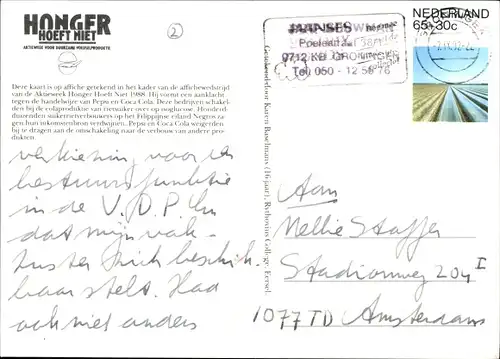 HONGER
HOEFT NIET
AKTIEWEEK VOOR DUURZAME VOEDSELPRODUKTIE
2
Deze kaart is op affiche getekend in het kader van de affichewedstrijd
van de Aktieweek Honger Hoeft Niet 1988. Hij vormt een aanklacht
tegen de handelwijze van Pepsi en Coca Cola. Deze bedrijven schakel-
den bij de colaproduktie van rietsuiker over op isoglucose. Honderd-
duizenden suikerrietverbouwers op het Filippijnse eiland Negros za-
gen hun inkomstenbron verdwijnen. Pepsi en Coca Cola weigerden
bij te dragen aan de omschakeling naar de verbouw van andere pro-
dukten.
verkiezing voor een
bestuursfunktie
in de V.D.P. En
dat mijn vak-
zuster zich beschik-
baar stelt. Had
ook niet anders
Getekend door Karen Baselmans (16 jaar), Rythovius College Eersel
JAANSES
Postbus
9712 KB GRONINGEN
Tel. 050 - 12 58 76
NEDERLAND
65+30c
Aan
Nellie Stoffer
Stadionweg 204 I
1077 TD Amsterdam